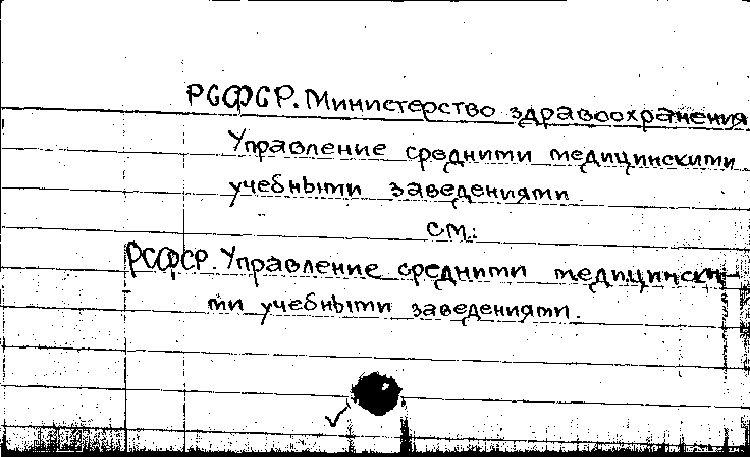 РСФСР. Министерство здравоохранения
Управление средними медицинскими
учебными заведениями
см.:
РСФСР. Управление средними медицински-
ми учебными заведениями.